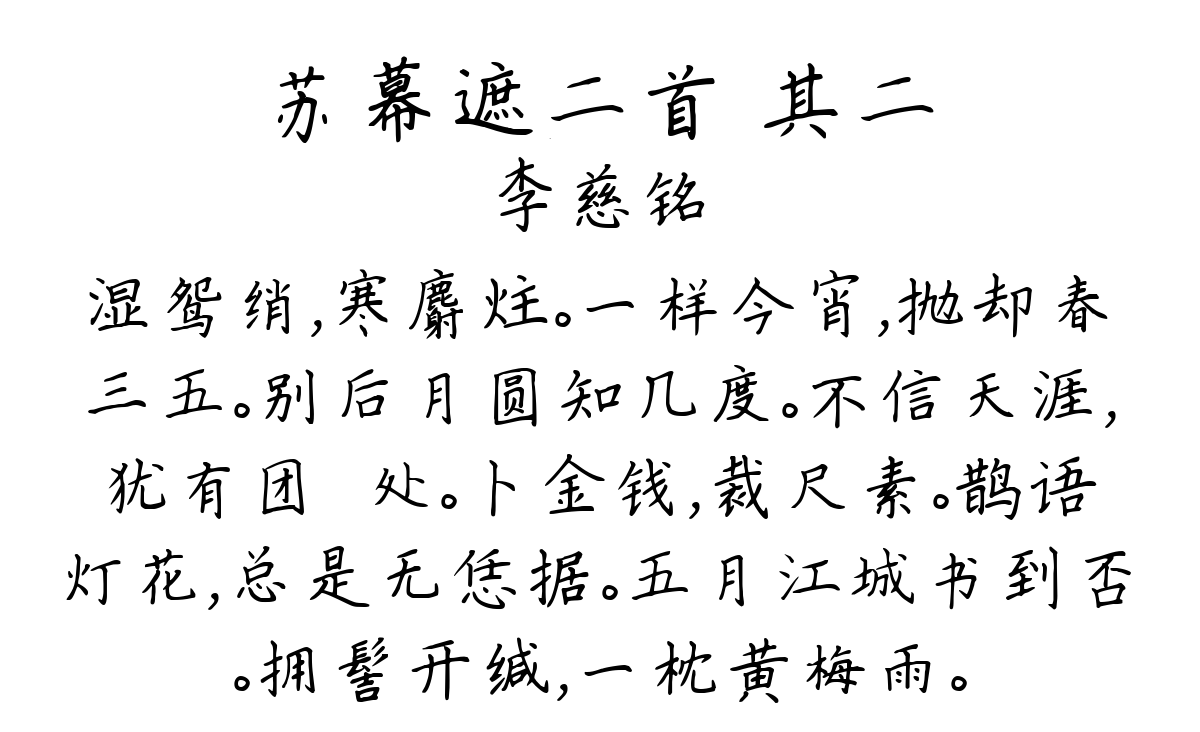 苏幕遮二首 其二
李慈铭
湿鸳绡,寒麝炷。一样今宵,抛却春
三五。别后月圆知几度。不信天涯,
犹有团 处。卜金钱,裁尺素。鹊语
灯花,总是无凭据。五月江城书到否
。拥髻开缄,一枕黄梅雨。